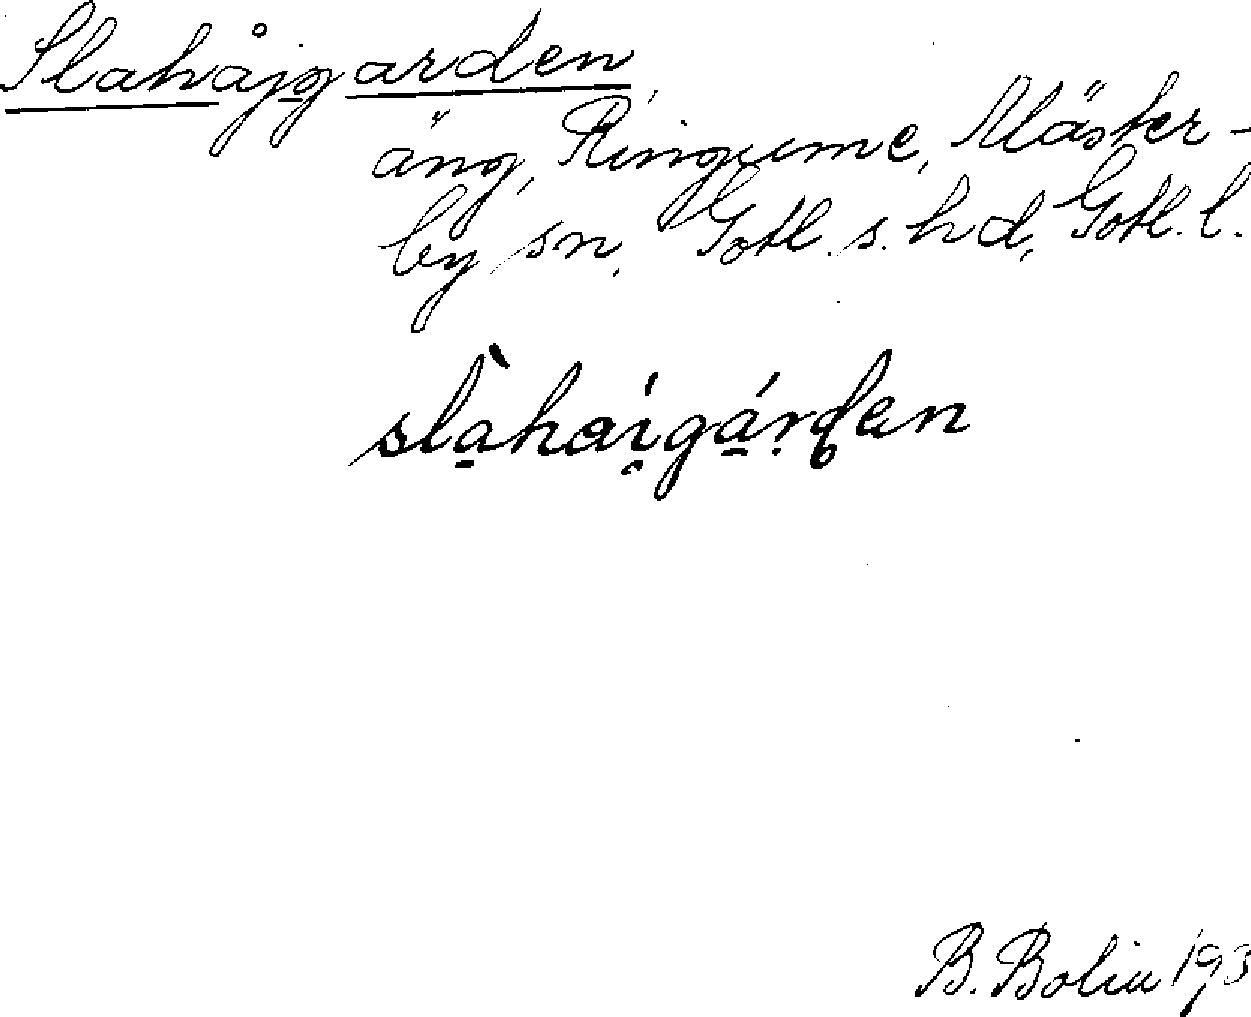 Slahåjgarden,
äng, Ringume, Mäster-
by sn, Gotl. s. hd, Gotl. l.
slahaigarden
B. Bolin 193